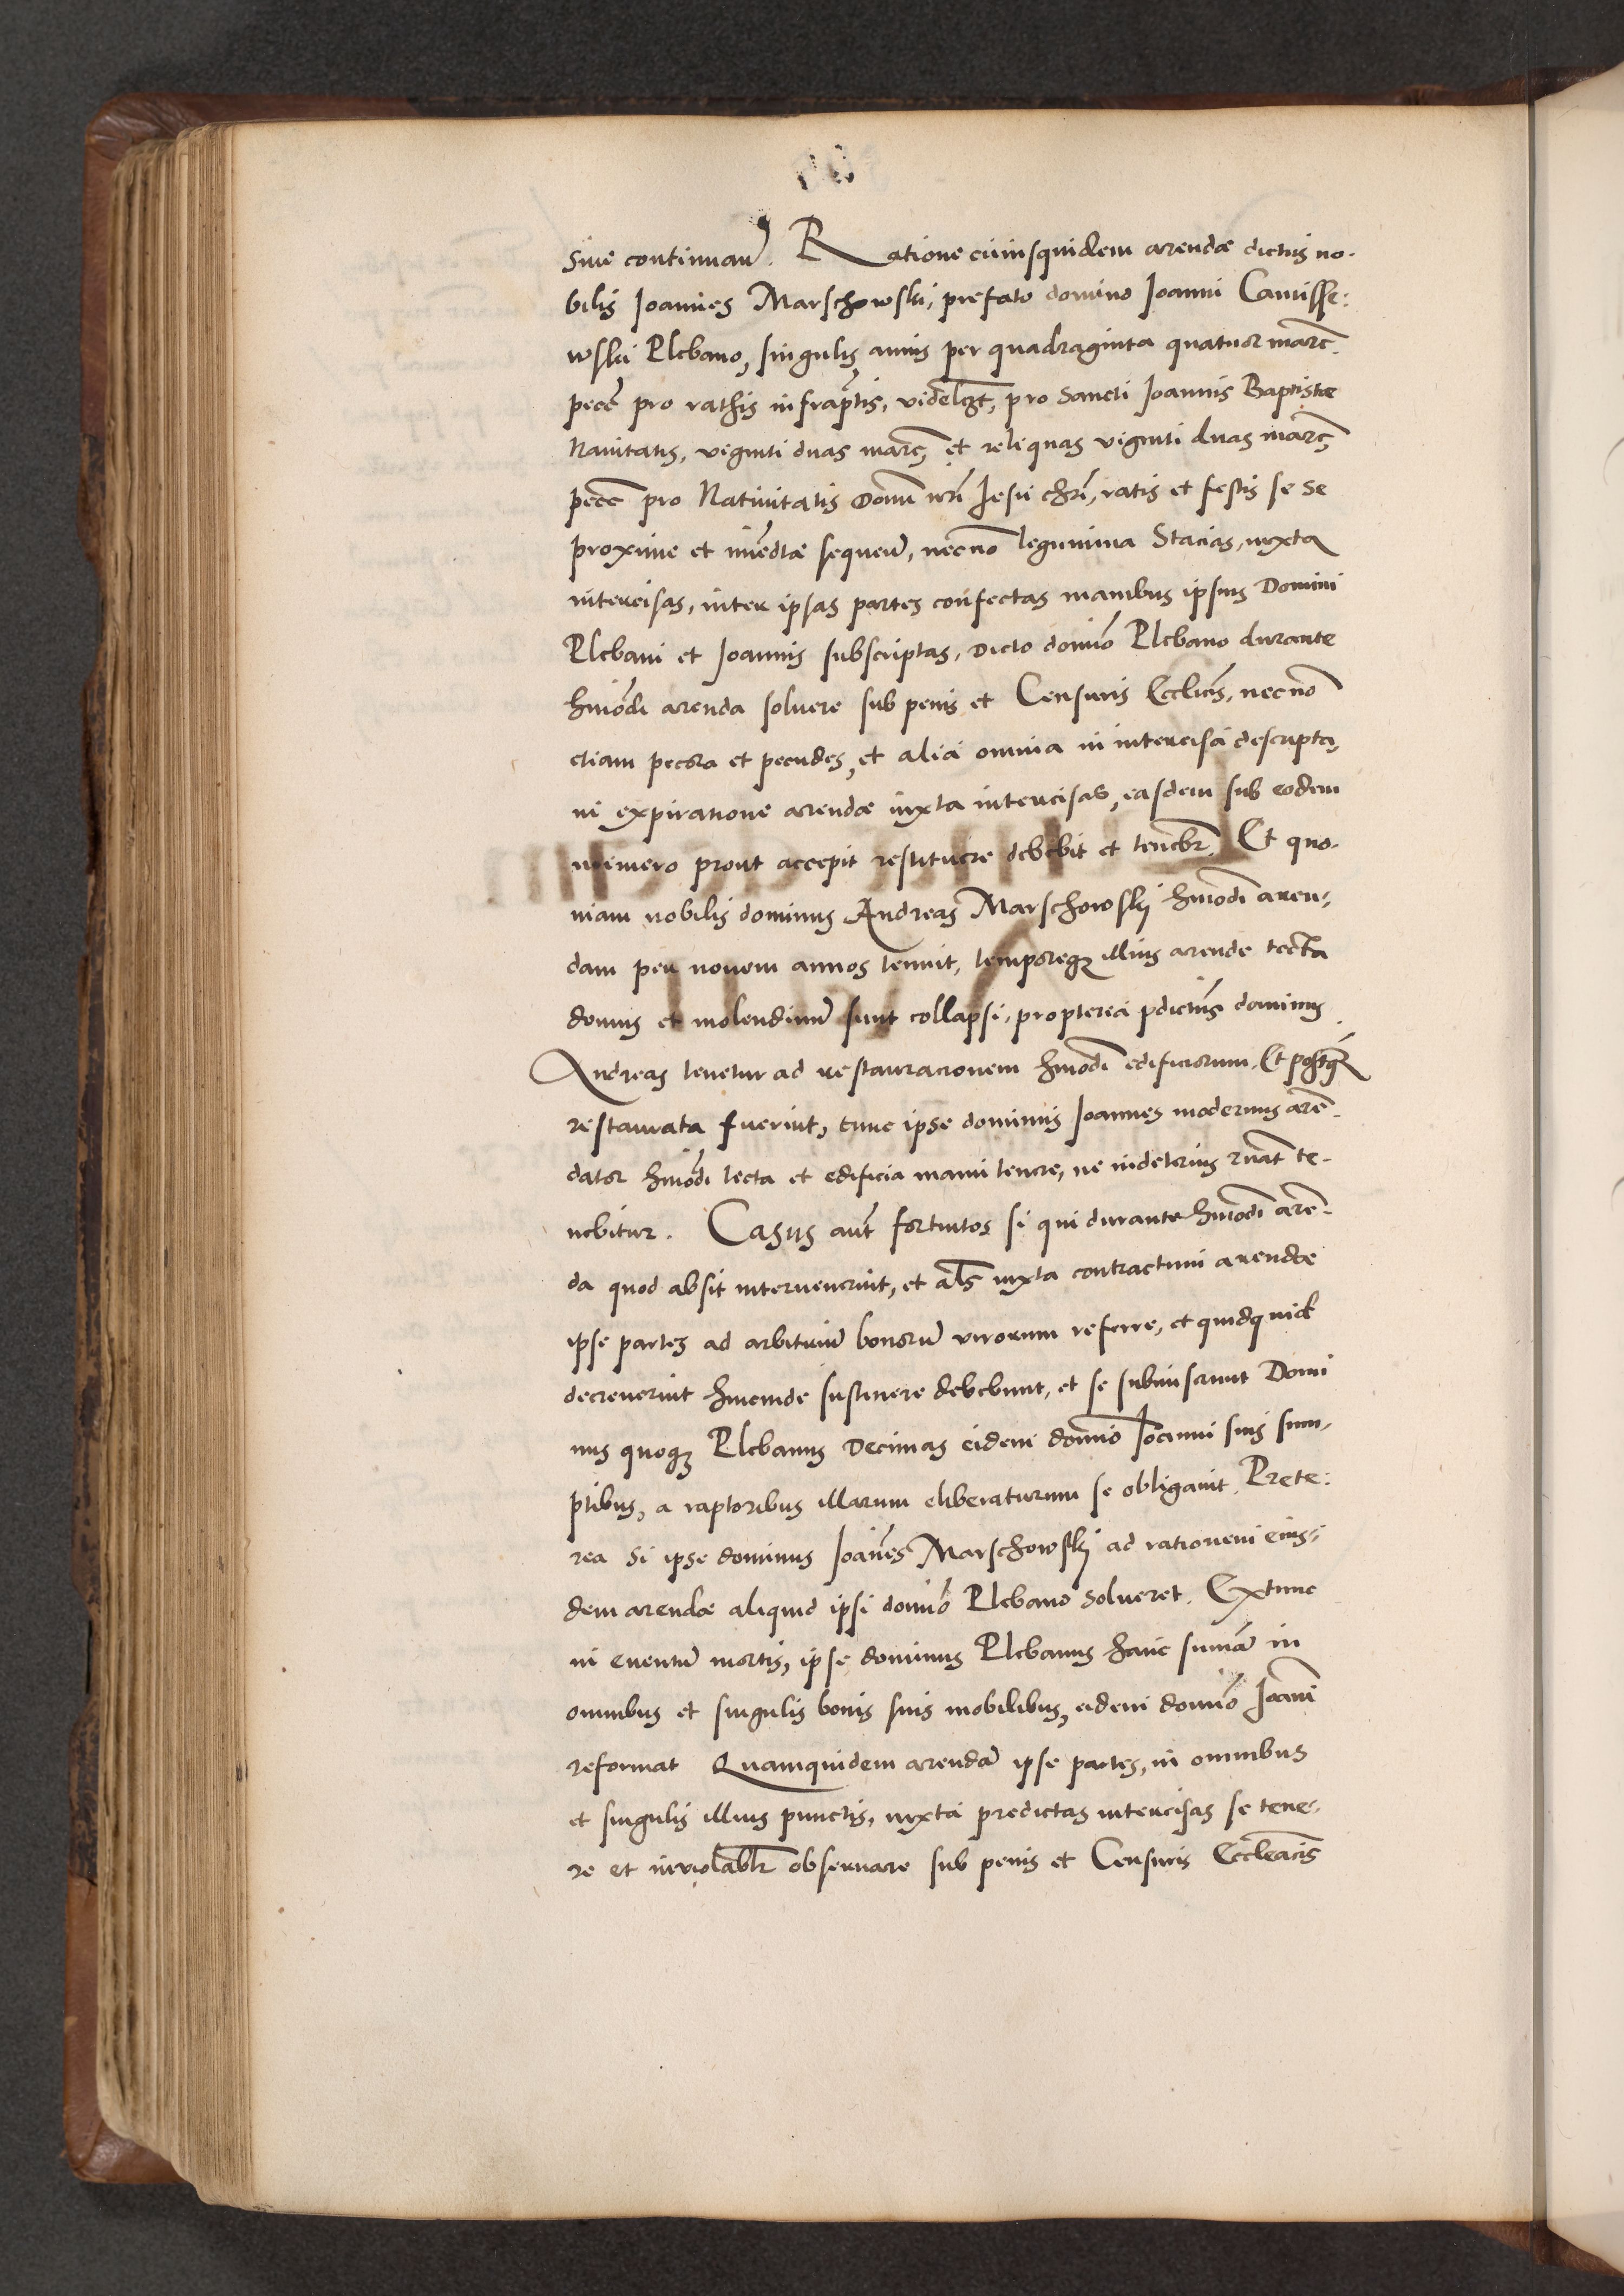 sive continuan̄. Ratione cuiusquidem arendæ dictus no-
bilis Joannes Marschowski, prefato domino Joanni Camisse:
wski Plebano, singulis annis per quadraginta quatuor marc̄
pecc̄ pro rathis infrap̄tis, videlcȝt, pro Sancti Joannis Baptistæ
Navitatis, viginti duas marc̄, et reliquas viginti duas marc̄
pecc̄ pro Nativitatis Domi nr̄i Jesu chr̄i, ratis et festis se se
proxime et im̄edtæ sequeñ, necno legumina Stacias, iuxta
intercisas, inter ipsas partes confectas manibus ipsius Domini
Plebani et Joannis subscriptas, Dicto domio Plebano durante
hmōdi arenda soluere sub penis et Censuris Eccliciś, necno
etiam pecora et pecudes, et alia omnia in intercisa descripta,
in expiratione arendæ iuxta intercisas, easdem sub eodem
numero prout accepit restituere debebit et tenebr̄. Et quo-
niam nobilis dominus Andreas Marschowskj hmōdi aren-
dam per novem annos tenuit, temporeqȝ illius arende tecta
domus et molendinū sunt collapsi, propterea pdictus dominus
Andreas tenetur ad restauracionem hmōdi edificiorum. Et postq̄
restaurata fuerint, tunc ipse dominus Joannes modernus arē-
dator hmōdi tecta et edificia manu tenere, ne indeterius ruāt te-
nebitur. Casus aut̄ fortuitos si qui durante hmōdi arē-
da quod absit intervenerint, et als̄ iuxta contractum arendæ
ipse partes ad arbitriū bonorū virorum referre, et quidquid
decreverint hincinde sustinere debebunt, et se submiserunt Domi
nus quoqȝ Plebanus Decimas eidem domio Joanni suis sum-
ptibus, a raptoribus illarum eliberaturum se obligavit. Prete:
rea Si ipse dominus Joānes Marschowskj ad rationem eius-
dem arendæ aliquid ipsi domio Plebano Solveret. Extunc
in eventū mortis, ipse dominus Plebanus hanc sumā in
omnibus et singulis bonis suis mobilibus, eidem domio Joāni
reformat Quamquidem arendā ipse partes, in omnibus
et singulis illius punctis, iuxta predictas intercisas se tene-
re et inviolablr̄ observare sub penis et Censuris Eccleācis